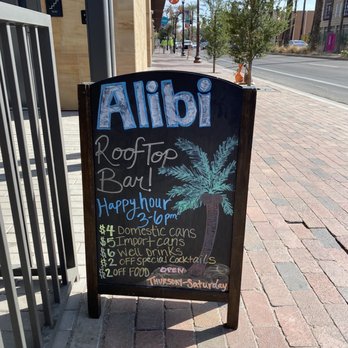 Alibi
RoofTop
Bar!
Happy hour
3-6pm
$4 Domestic cans
$5 Import cans
$6 Well drinks
$2 OFF Special Cocktails
$2 OFF FOOD
OPEN
THURSDAY-Saturday